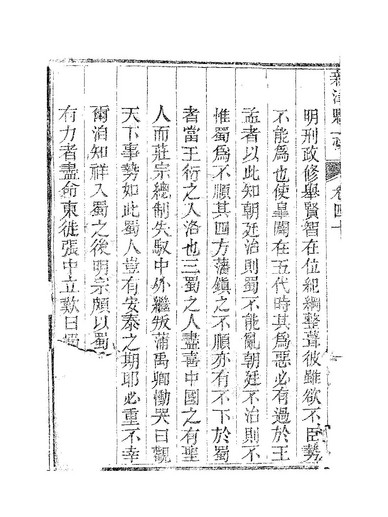 新津縣
卷四十
明刑政修舉賢智在位紀綱整葺彼雖欲不臣勢
不能爲也使辠闢在五代時其爲惡必有過於王
孟者以此知朝廷治則蜀不能亂朝廷不治則不
惟蜀爲不順其四方藩鎭之不順亦有不下於蜀
者當王衍之入洛也三蜀之人盡喜中國之有聖
人而莊宗總制失馭中外繼叛蒲禹卿慟哭曰觀
天下事勢如此蜀人豈有安泰之期耶必重不幸
爾洎知祥入蜀之後明宗頗以蜀
有力者盡命東徙張中立歎曰